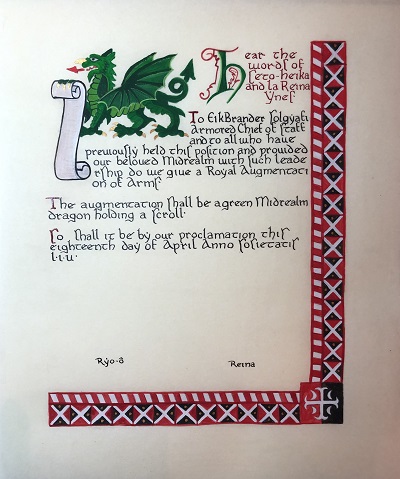 Hear the
words of
Seto-Heika
and la Reina
Ynes
To EikBrander Solgyafi
Armored Chief of Staff
and to all who have
previously held this position and provided
our beloved Midrealm with such leade
rship do we give a Royal Augmentati
on of Arms
The augmentation shall be a green Midrealm
dragon holding a scroll.
So shall it be by our proclamation this
eighteenth day of April Anno Societatis
L.I.V.
Ryo-ō
Reina